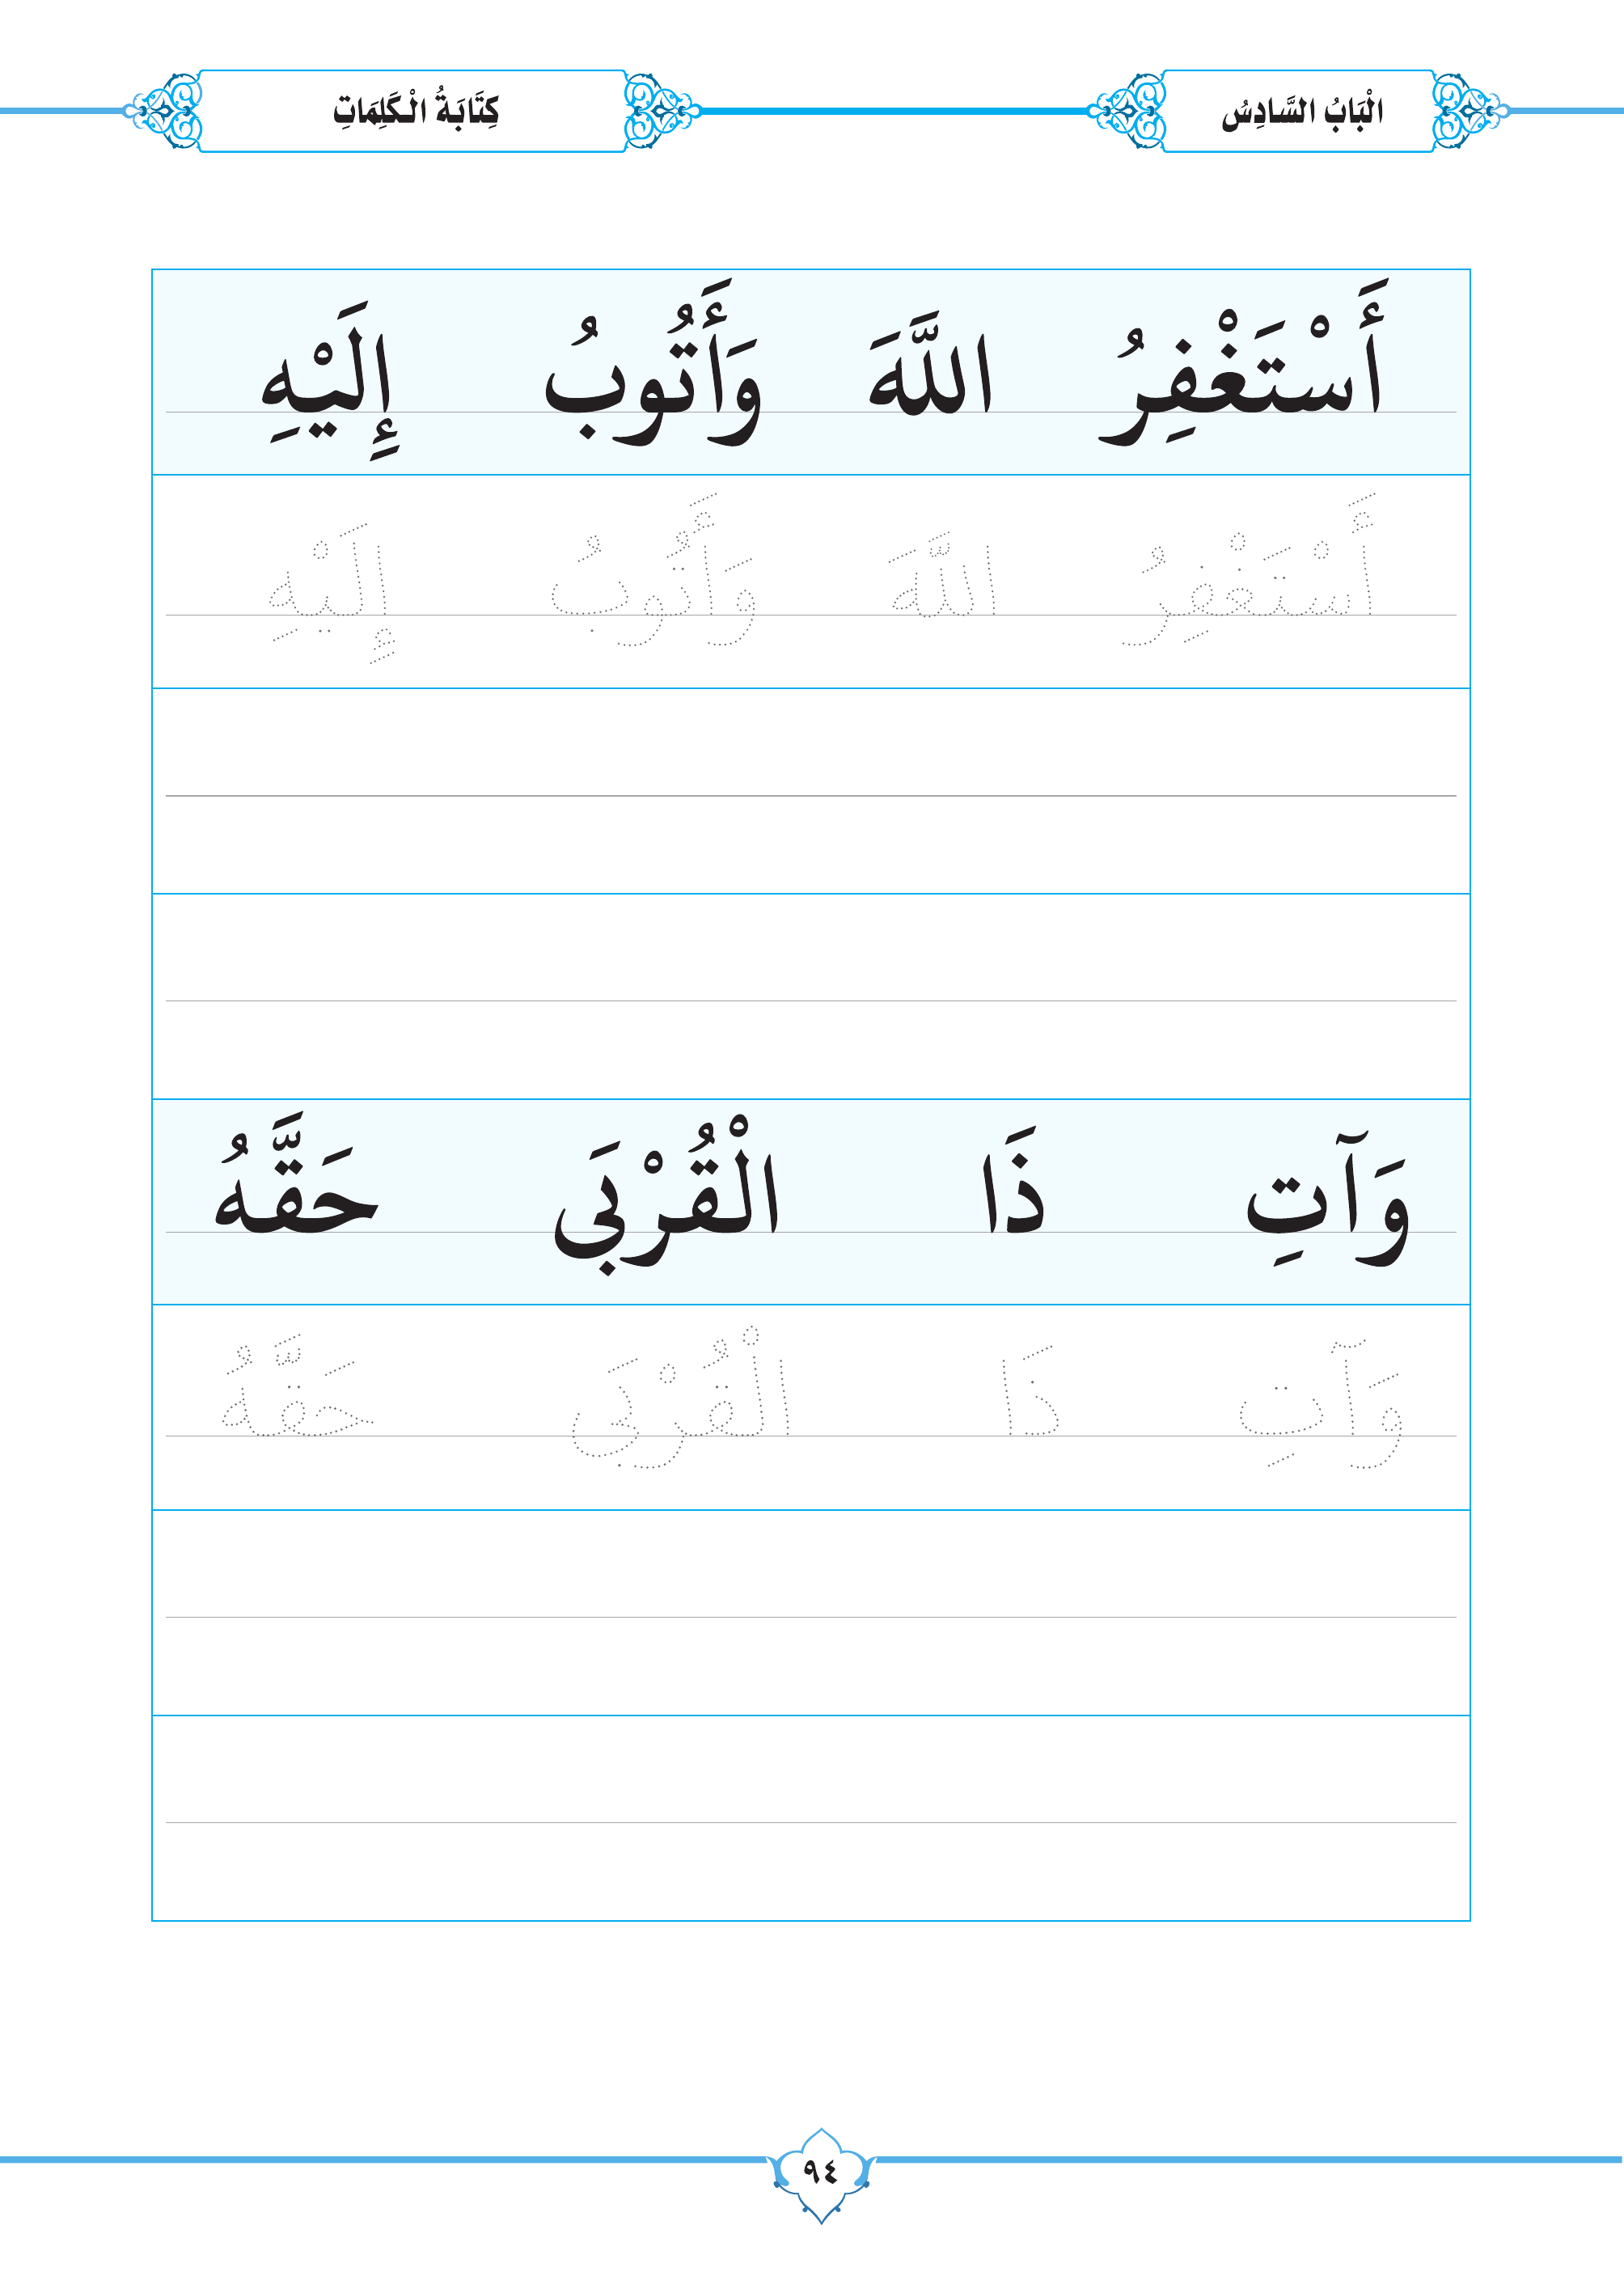 الْبَابُ السَّادِسُ
كِتَابَةُ الْكَلِمَاتِ
أَسْتَغْفِرُ اللَّهَ وَأَتُوبُ إِلَيْهِ
أَسْتَغْفِرُ اللَّهَ وَأَتُوبُ إِلَيْهِ
وَآتِ ذَا الْقُرْبَى حَقَّهُ
وَآتِ ذَا الْقُرْبَى حَقَّهُ
٩٤